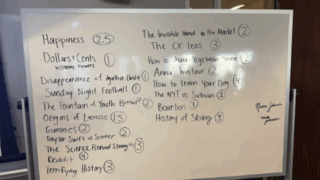 Happiness 2.5
Dollars & Cents 1
Disappearance of Agatha Christie 1
Sunday Night Football 1
The Fountain of Youth
Origins of License
Gimmies 2
Taylor Swift vs Scooter 2
The Science Behind 3
Reddit 4
Terrifying History 3
The Invisible Hand in the Market 2
The CX Lens 3
How to Make Vegetarian 2
Anna Wintour 2
How to Train Your Dog 4
The NYT vs Sullivan 2
Bourbon 1
History of Skiing 3